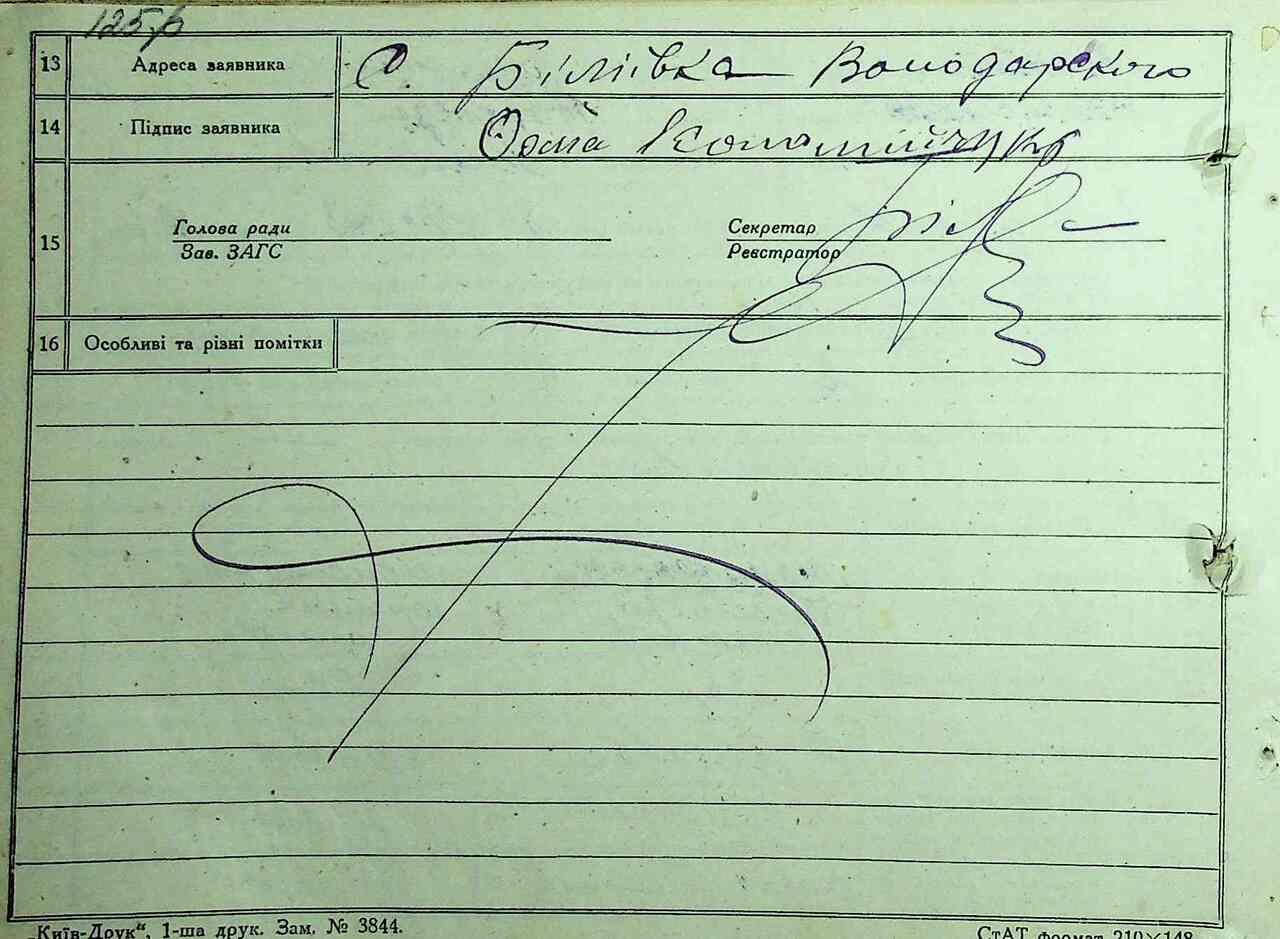 125
13 Адреса заявника С. Біліївка Володарского
14 Підпис заявника
15 Голова ради Секретар
Зав. ЗАГС Реєстратор
16 Особливі та різні помітки
„Київ-Друк“, 1-ша друк. Зам. № 3844. СтАТ формат 210×148